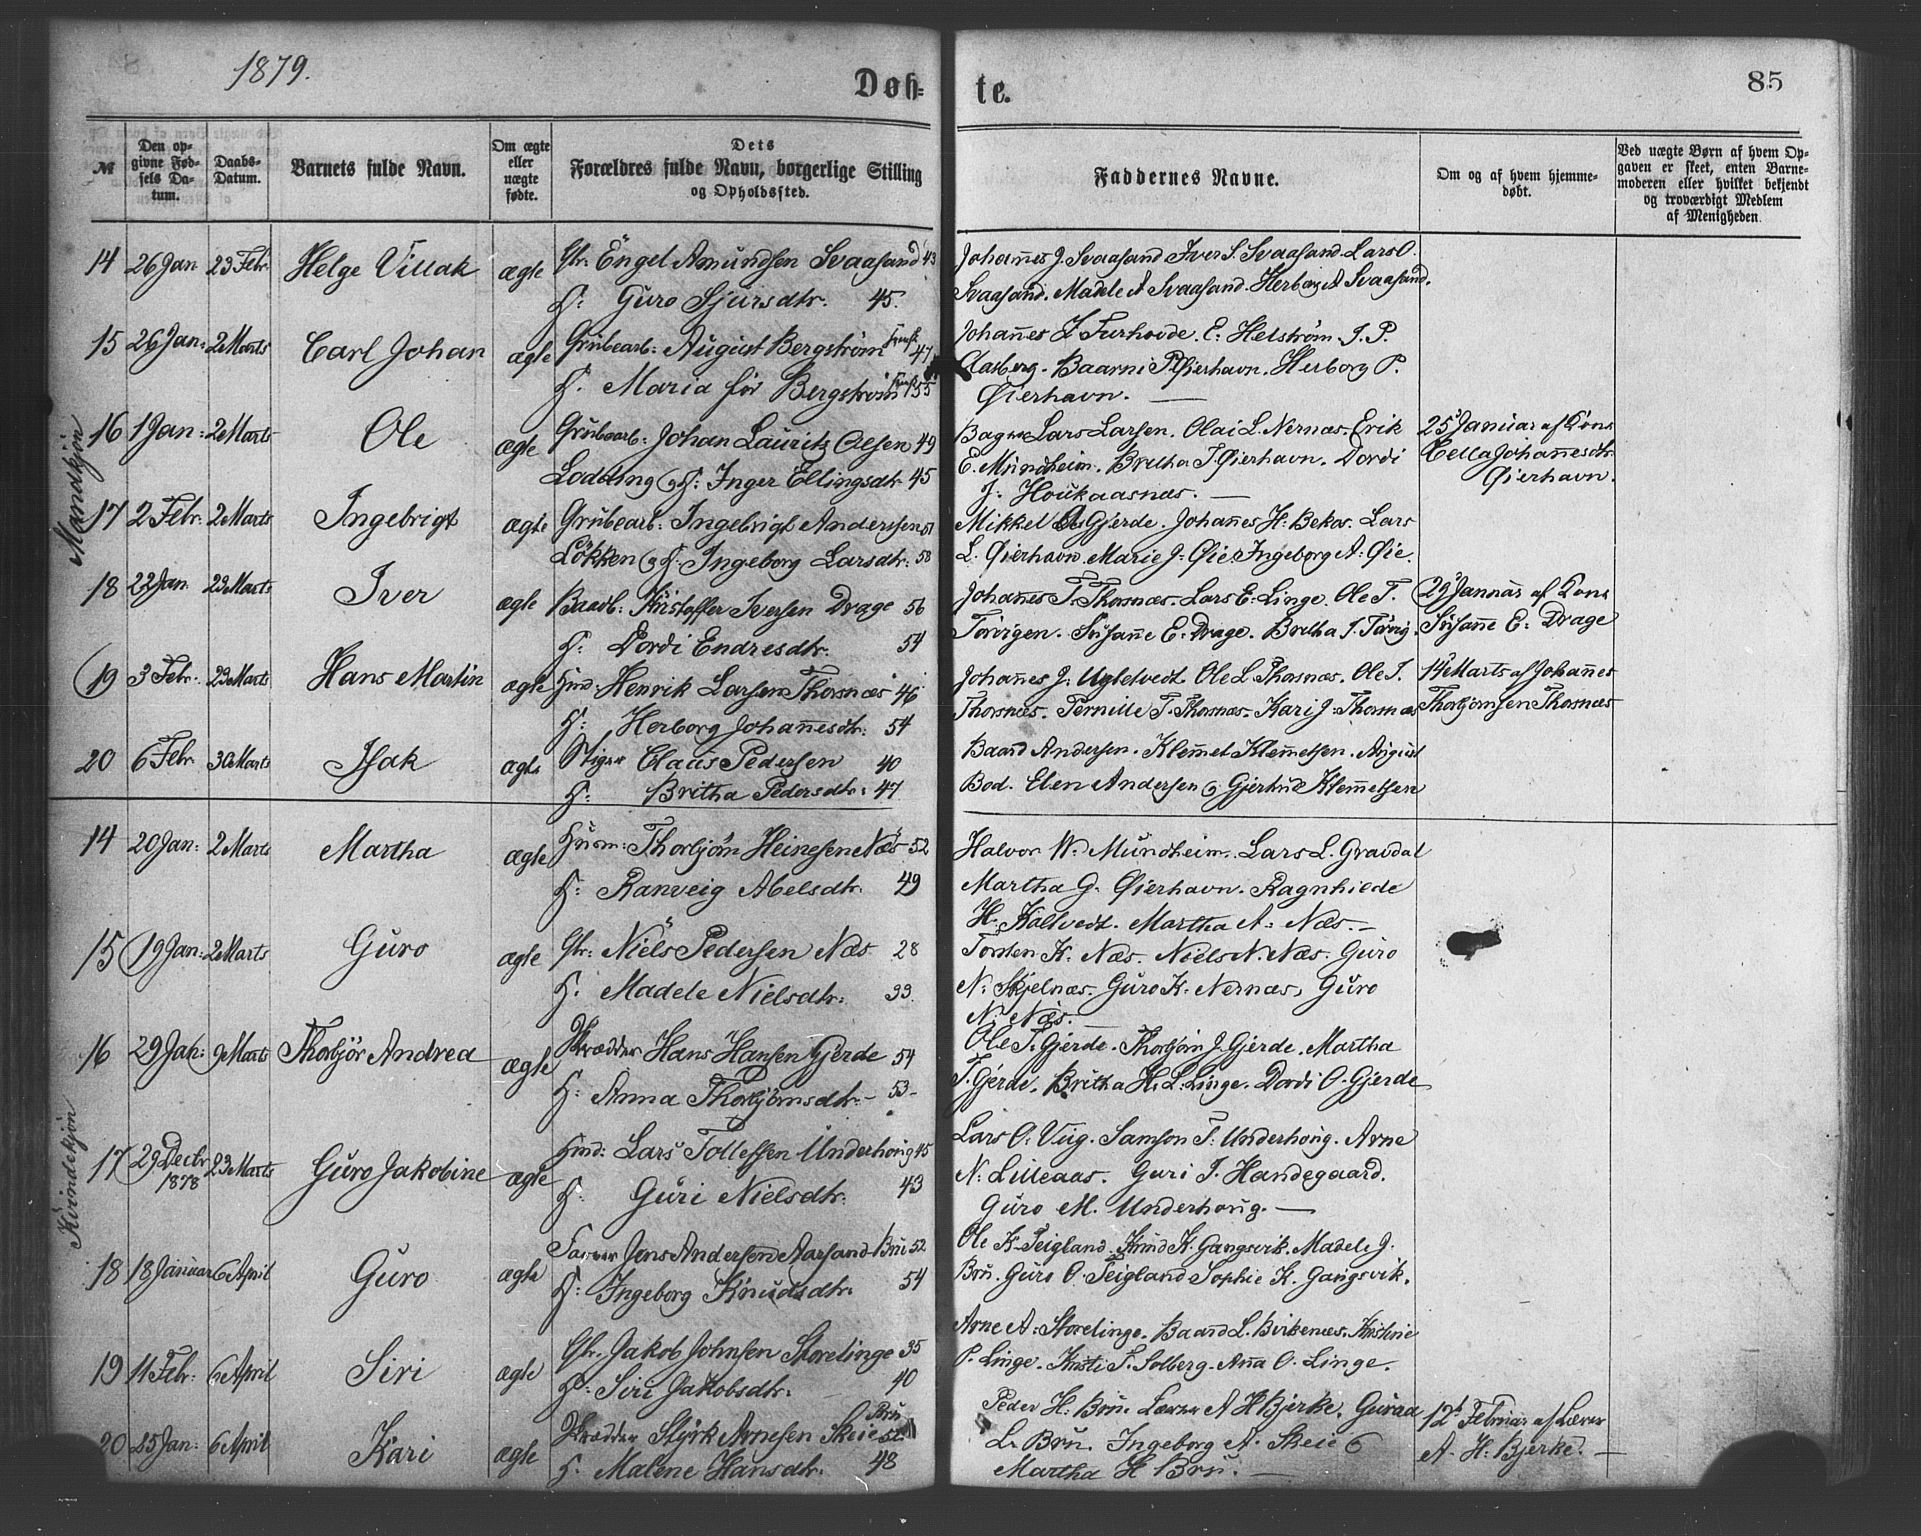 1879.
Døb= te.
85
№ | Den opgivne Fødsels Datum. | Daabs-Datum. | Barnets fulde Navn. | Om ægte eller uægte fødte. | Dets Forældres fulde Navn, borgerlige Stilling og Opholdssted. | Faddernes Navne. | Om og af hvem hjemmedøbt. | Ved uægte Børn af hvem Opgaven er skeet, enten Barnemoderen eller hvilket bekjendt og troværdigt Medlem af Menigheden.
Mandkjøn
14 26 Jan 23 Febr. Helge Villak ægte Gbr. Engel Amundsen Svaasand 43 Johannes J. Svaasand Iver S. Svaasand. Lars O.
H. Guro Sjursdtr. 45. Svaasand. Madele A Svaasand. Herborg A Svaasand.
15 26 Jan: 2 Marts Carl Johan ægte Grubearb: August Bergstrøm 47 Johannes J Furhovde. E. Helstrøm. J. P.
H. Maria før Bergstrøm 55 Aasberg. Baarni P. Øierhavn. Herborg P.
Øierhavn.
16 1 Jan: 2 Marts Ole ægte Grubearb: Johan Lauritz Olsen 49 Lars Larsen. Olai L. Nernæs. Erik 25 Januar af Kone
Lodding og H: Inger Ellingsdtr 45 E. Mundheim. Britha T. Øierhavn. Dordi Cella Johannesdtr
J. Houkaasnæs. Øierhavn.
17 2 Febr. 2 Marts Ingebrigt ægte Grubearb: Ingebrigt Andersen 51 Mikkel Gjerde. Johannes H. Bekos. Lars
Løkken og H. Ingeborg Larsdtr: 58 L. Øierhavn. Marie J. Øie Ingeborg A: Øie.
18 22 Jan 23 Marts Iver ægte Kristoffer Iversen Drage 56 Johannes T. Thorsnæs. Lars E. Linge. Ole T. 29 Januar af Kone
H: Dordi Endresdtr. 54 Torvigen. Susanne E. Drage. Britha J. Torvig. Susanne E. Drage
19 3 Febr. 23 Marts Hans Martin ægte Henrik Larsen Thorsnæs 46 Johannes J. Ugletvedt Ole L. Thorsnæs. Ole T. 14 Marts af Johannes
H: Herborg Johannesdtr: 54 Thorsnæs. Pernille T. Thorsnæs. Kari J. Thorsnæs Thorbjørnsen Thorsnæs
20 6 Febr. 30 Marts Isak ægte Stiger Claus Pedersen 40 Baard Andersen. Klemet Klemetsen. August
H: Britha Pedersdtr: 47 Bod. Elen Andersen og Gjertrud Klemetsen
Kvindekjøn
14 20 Jan: 2 Marts Martha ægte Husm: Thorbjørn Heinesen Næs 52 Halvor W. Mundheim. Lars L. Gravdal
H: Ranveig Abelsdtr. 49 Martha G. Øierhavn. Ragnhilde
H. Kaltvedt. Martha A. Næs.
15 19 Jan: 2 Marts Guro ægte Gbr: Niels Pedersen Næs 28 Torsten K. Næs. Niels N. Næs. Guro
H. Madele Nielsdtr: 33. N. Skjelnæs. Guro K. Nernæs, Guro
N. Næs.
16 29 Jan: 9 Marts Thorbjør Andrea ægte Skrædder Hans Hansen Gjerde 54 Ole T. Gjerde. Thorbjørn J. Gjerde. Martha
H. Anna Thorbjørnsdtr. 53 T. Gjerde. Britha H. L. Linge. Dordi O. Gjerde
17 29 Decbr 1878 23 Marts Guro Jakobine ægte Lars Tollefsen Underhoug 45 Lars O. Viig. Samson T. Underhoug. Arne
H. Guri Nielsdtr. 43 N. Lilleaas. Guri T. Handegaard.
Guro M. Underhoug.
18 18 Januar 6 April Guro ægte Farver Jens Andersen Aarsand Bru 52 Ole K. Teigland. Knud K. Gangsvik. Madele J.
H: Ingeborg Knudsdtr. 54 Bru. Guro O. Teigland Sophie K. Gangsvik.
19 11 Febr: 6 April Siri ægte Gbr. Jakob Johnsen Storelinge 35 Arne A. Storelinge. Baard L. Birkenæs. Kristine
H: Siri Jakobsdtr. 40 P. Linge. Kristi T. Solberg. Anna O. Linge.
20 25 Jan: 6 April Kari ægte Skrædder Styrk Arnesen Skeie Bru 52 Peder H. Bru. Lærer A H Bjerke. Guraa 12 Februar af Lærer
H. Malene Hansdtr. 48 L. Bru. Ingeborg A. Skeie A. H. Bjerke.
Martha H Bru.